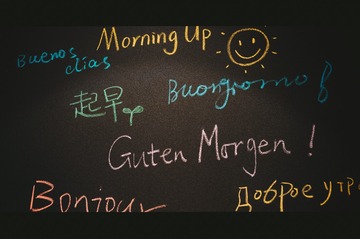 Morning Up
Buenos
dias
起早
Buongiorno
Guten Morgen !
Bonjour
Доброе утро